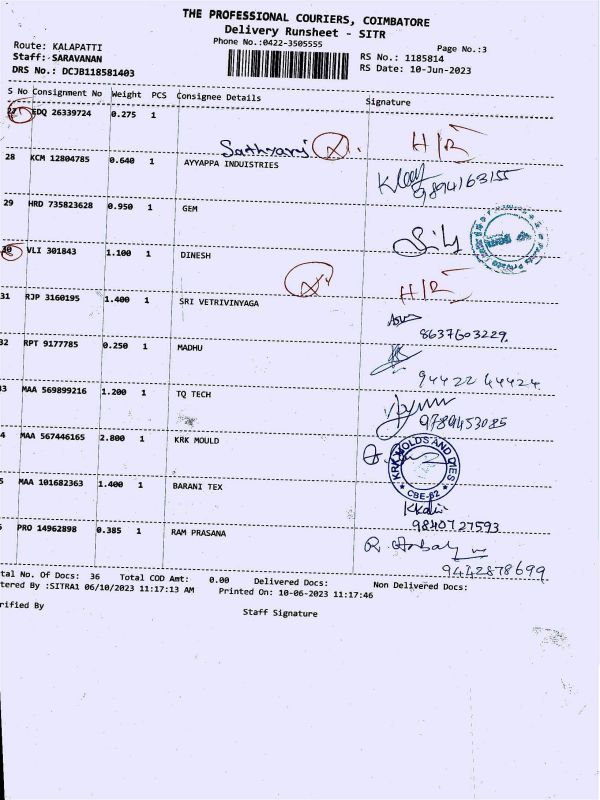 THE PROFESSIONAL COURIERS, COIMBATORE
Delivery Runsheet - SITR
Phone No.:0422-3505555
Page No.:3
Route: KALAPATTI
RS No.: 1185814
Staff: SARAVANAN
RS Date: 10-Jun-2023
DRS No.: DCJB118581403
S No Consignment No Weight PCS Consignee Details Signature
27 EDQ 26339724 0.275 1
Sathyaraj H/R
28 KCM 12804785 0.640 1 AYYAPPA INDUISTRIES
9894163155
29 HRD 735823628 0.950 1 GEM
30 VLI 301843 1.100 1 DINESH
H/R
31 RJP 3160195 1.400 1 SRI VETRIVINYAGA
8637603229.
32 RPT 9177785 0.250 1 MADHU
94422 44424
3 MAA 569899216 1.200 1 TQ TECH
9789453085
4 MAA 567446165 2.800 1 KRK MOULD
KRK MOLDS AND DIES
CBE-62
5 MAA 101682363 1.400 1 BARANI TEX
9840727593
PRO 14962898 0.385 1 RAM PRASANA
R.
9442878699
tal No. Of Docs: 36 Total COD Amt: 0.00 Delivered Docs: Non Delivered Docs:
tered By :SITRA1 06/10/2023 11:17:13 AM Printed On: 10-06-2023 11:17:46
rified By Staff Signature